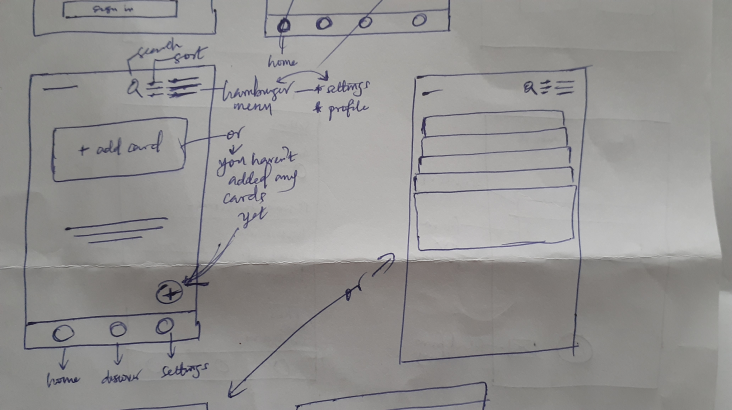 sign in
home
search
sort
hamburger
menu
* settings
* profile
+ add card
or
you haven't
added any
cards
yet
+
or
home
discover
settings